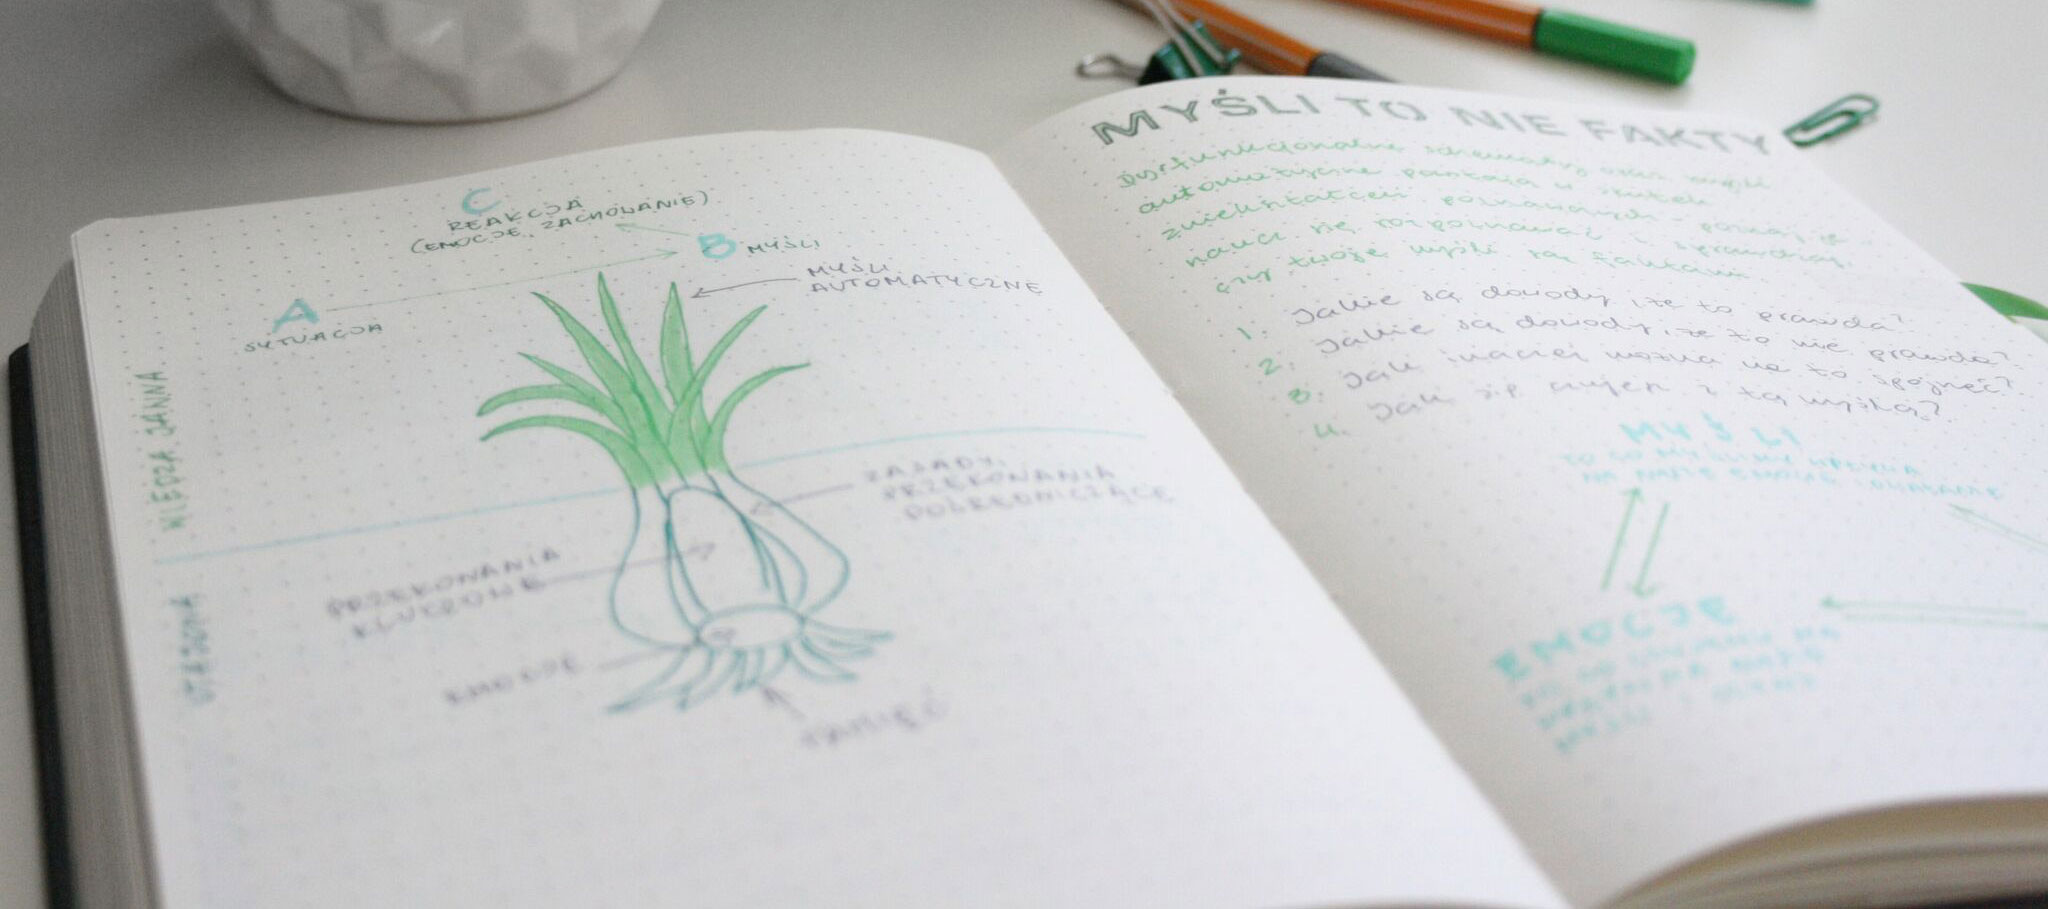 C
REAKCJA
(EMOCJE, ZACHOWANIE)
B MYŚLI
A
SYTUACJA
MYŚLI
AUTOMATYCZNE
WIEDZA JAWNA
ZASADY,
PRZEKONANIA
POŚREDNICZĄCE
PRZEKONANIA
KLUCZOWE
EMOCJE
PAMIĘĆ
MYŚLI TO NIE FAKTY
Dysfunkcjonalne schematy oraz myśli
automatyczne powstają w skutek
zniekształceń poznawczych - poznaj je
naucz się rozpoznawać i sprawdzaj,
czy twoje myśli są faktami
1. Jakie są dowody, że to prawda?
2. Jakie są dowody, że to nie prawda?
3. Jak inaczej można na to spojrzeć?
4. Jak się czujesz z tą myślą?
MYŚLI
TO CO MYŚLIMY WPŁYWA
NA NASZE EMOCJE I DZIAŁANIE
EMOCJE
TO CO CZUJEMY MA
WPŁYW NA NASZE
MYŚLI I